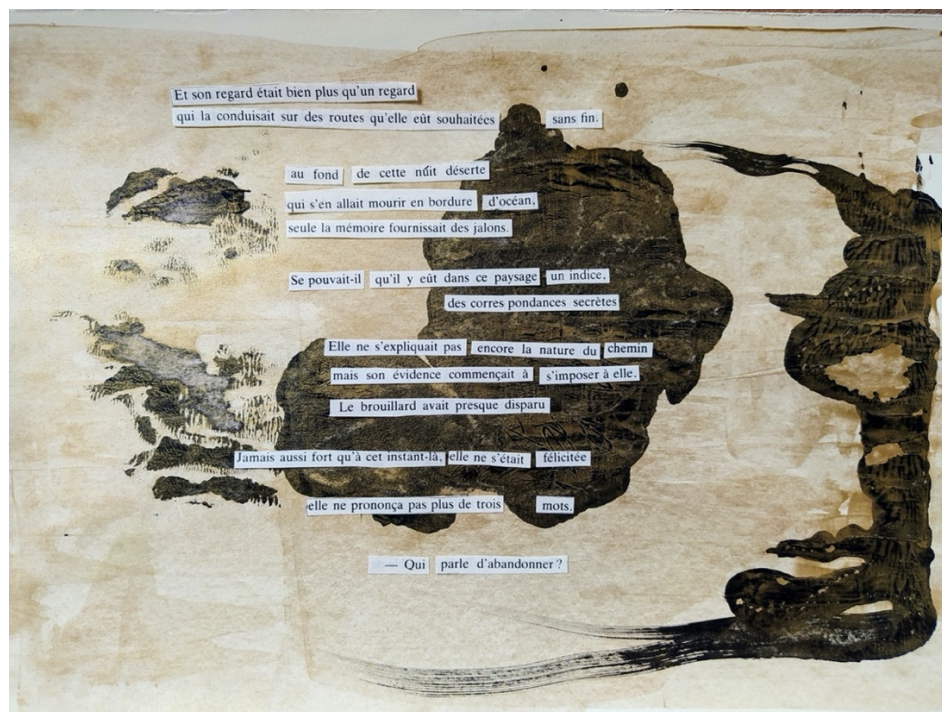 Et son regard était bien plus qu'un regard
qui la conduisait sur des routes qu'elle eût souhaitées sans fin.
au fond de cette nuit déserte
qui s'en allait mourir en bordure d'océan,
seule la mémoire fournissait des jalons.
Se pouvait-il qu'il y eût dans ce paysage un indice,
des corres pondances secrètes
Elle ne s'expliquait pas encore la nature du chemin
mais son évidence commençait à s'imposer à elle.
Le brouillard avait presque disparu
Jamais aussi fort qu'à cet instant-là, elle ne s'était félicitée
elle ne prononça pas plus de trois mots.
— Qui parle d'abandonner ?